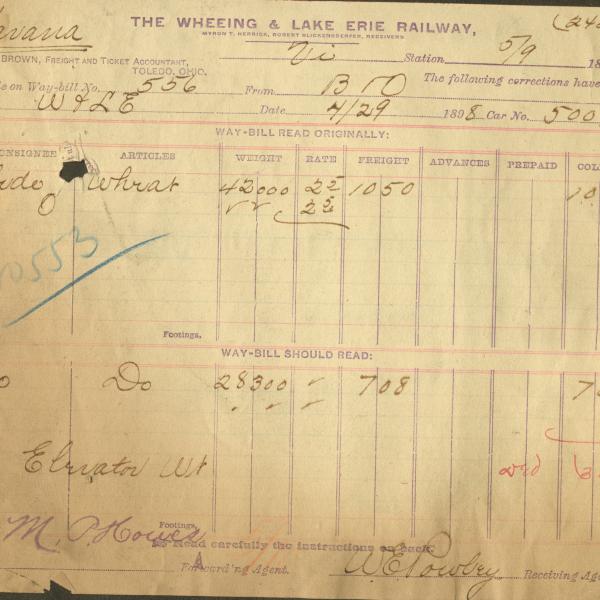 THE WHEEING & LAKE ERIE RAILWAY,
MYRON T. HERRICK, ROBERT BLICKENSDERFER, RECEIVERS
Station 5/9 18
BROWN, FREIGHT AND TICKET ACCOUNTANT,
TOLEDO, OHIO.
The following corrections have
on Way-bill No. 556 From B O
W & L E Date 4/29 1898 Car No. 500
WAY-BILL READ ORIGINALLY:
CONSIGNEE ARTICLES WEIGHT RATE FREIGHT ADVANCES PREPAID COL
Wheat 42000 25 1050 10
25
0553
Footings,
WAY-BILL SHOULD READ:
Do 28300 " 708 7
Elevator Wt
M. P. Howes
Footings,
Read carefully the instructions on back.
Forward'ng Agent. Receiving Age